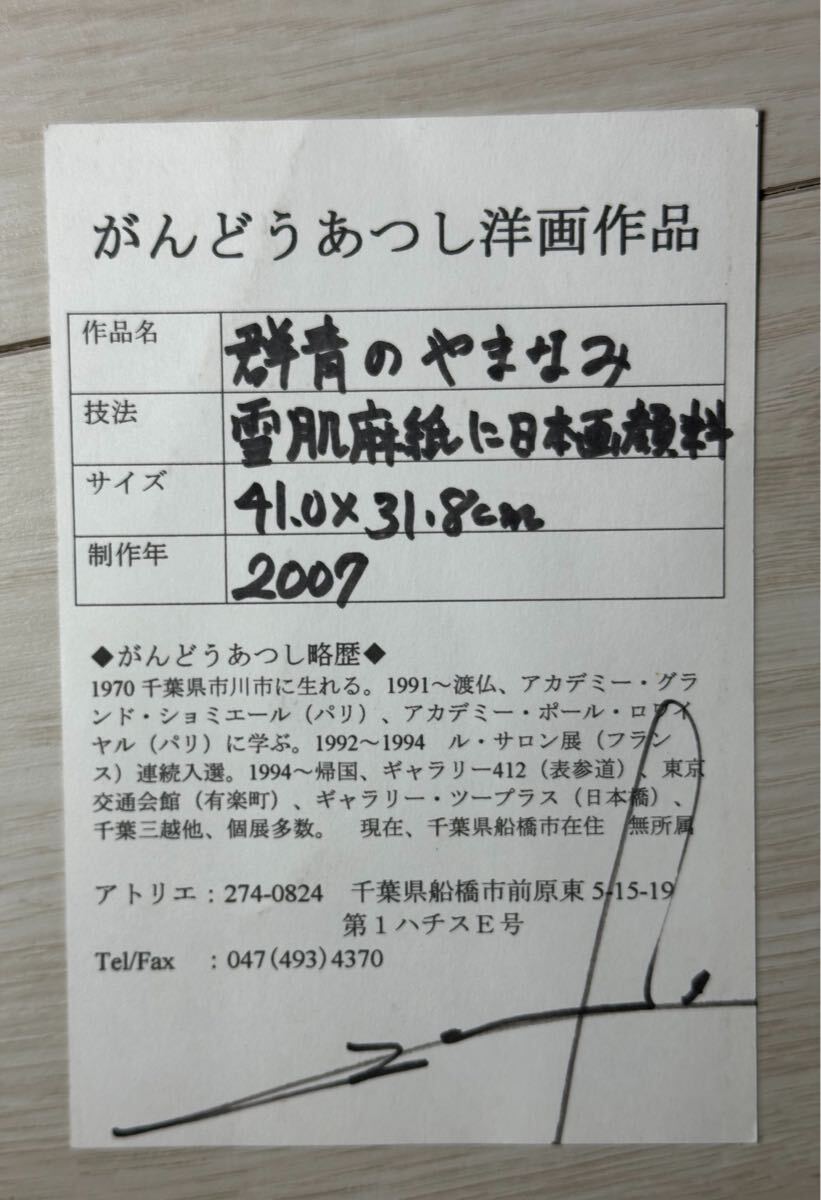 がんどうあつし洋画作品
作品名 群青のやまなみ
技法 雪肌麻紙に日本画顔料
サイズ 41.0×31.8cm
制作年 2007
◆がんどうあつし略歴◆
1970 千葉県市川市に生れる。1991～渡仏、アカデミー・グラ
ンド・ショミエール（パリ）、アカデミー・ポール・ロワイ
ヤル（パリ）に学ぶ。1992～1994 ル・サロン展（フラン
ス）連続入選。1994～帰国、ギャラリー412（表参道）、東京
交通会館（有楽町）、ギャラリー・ツープラス（日本橋）、
千葉三越他、個展多数。 現在、千葉県船橋市在住 無所属
アトリエ：274-0824 千葉県船橋市前原東 5-15-19
第１ハチスＥ号
Tel/Fax ：047(493)4370